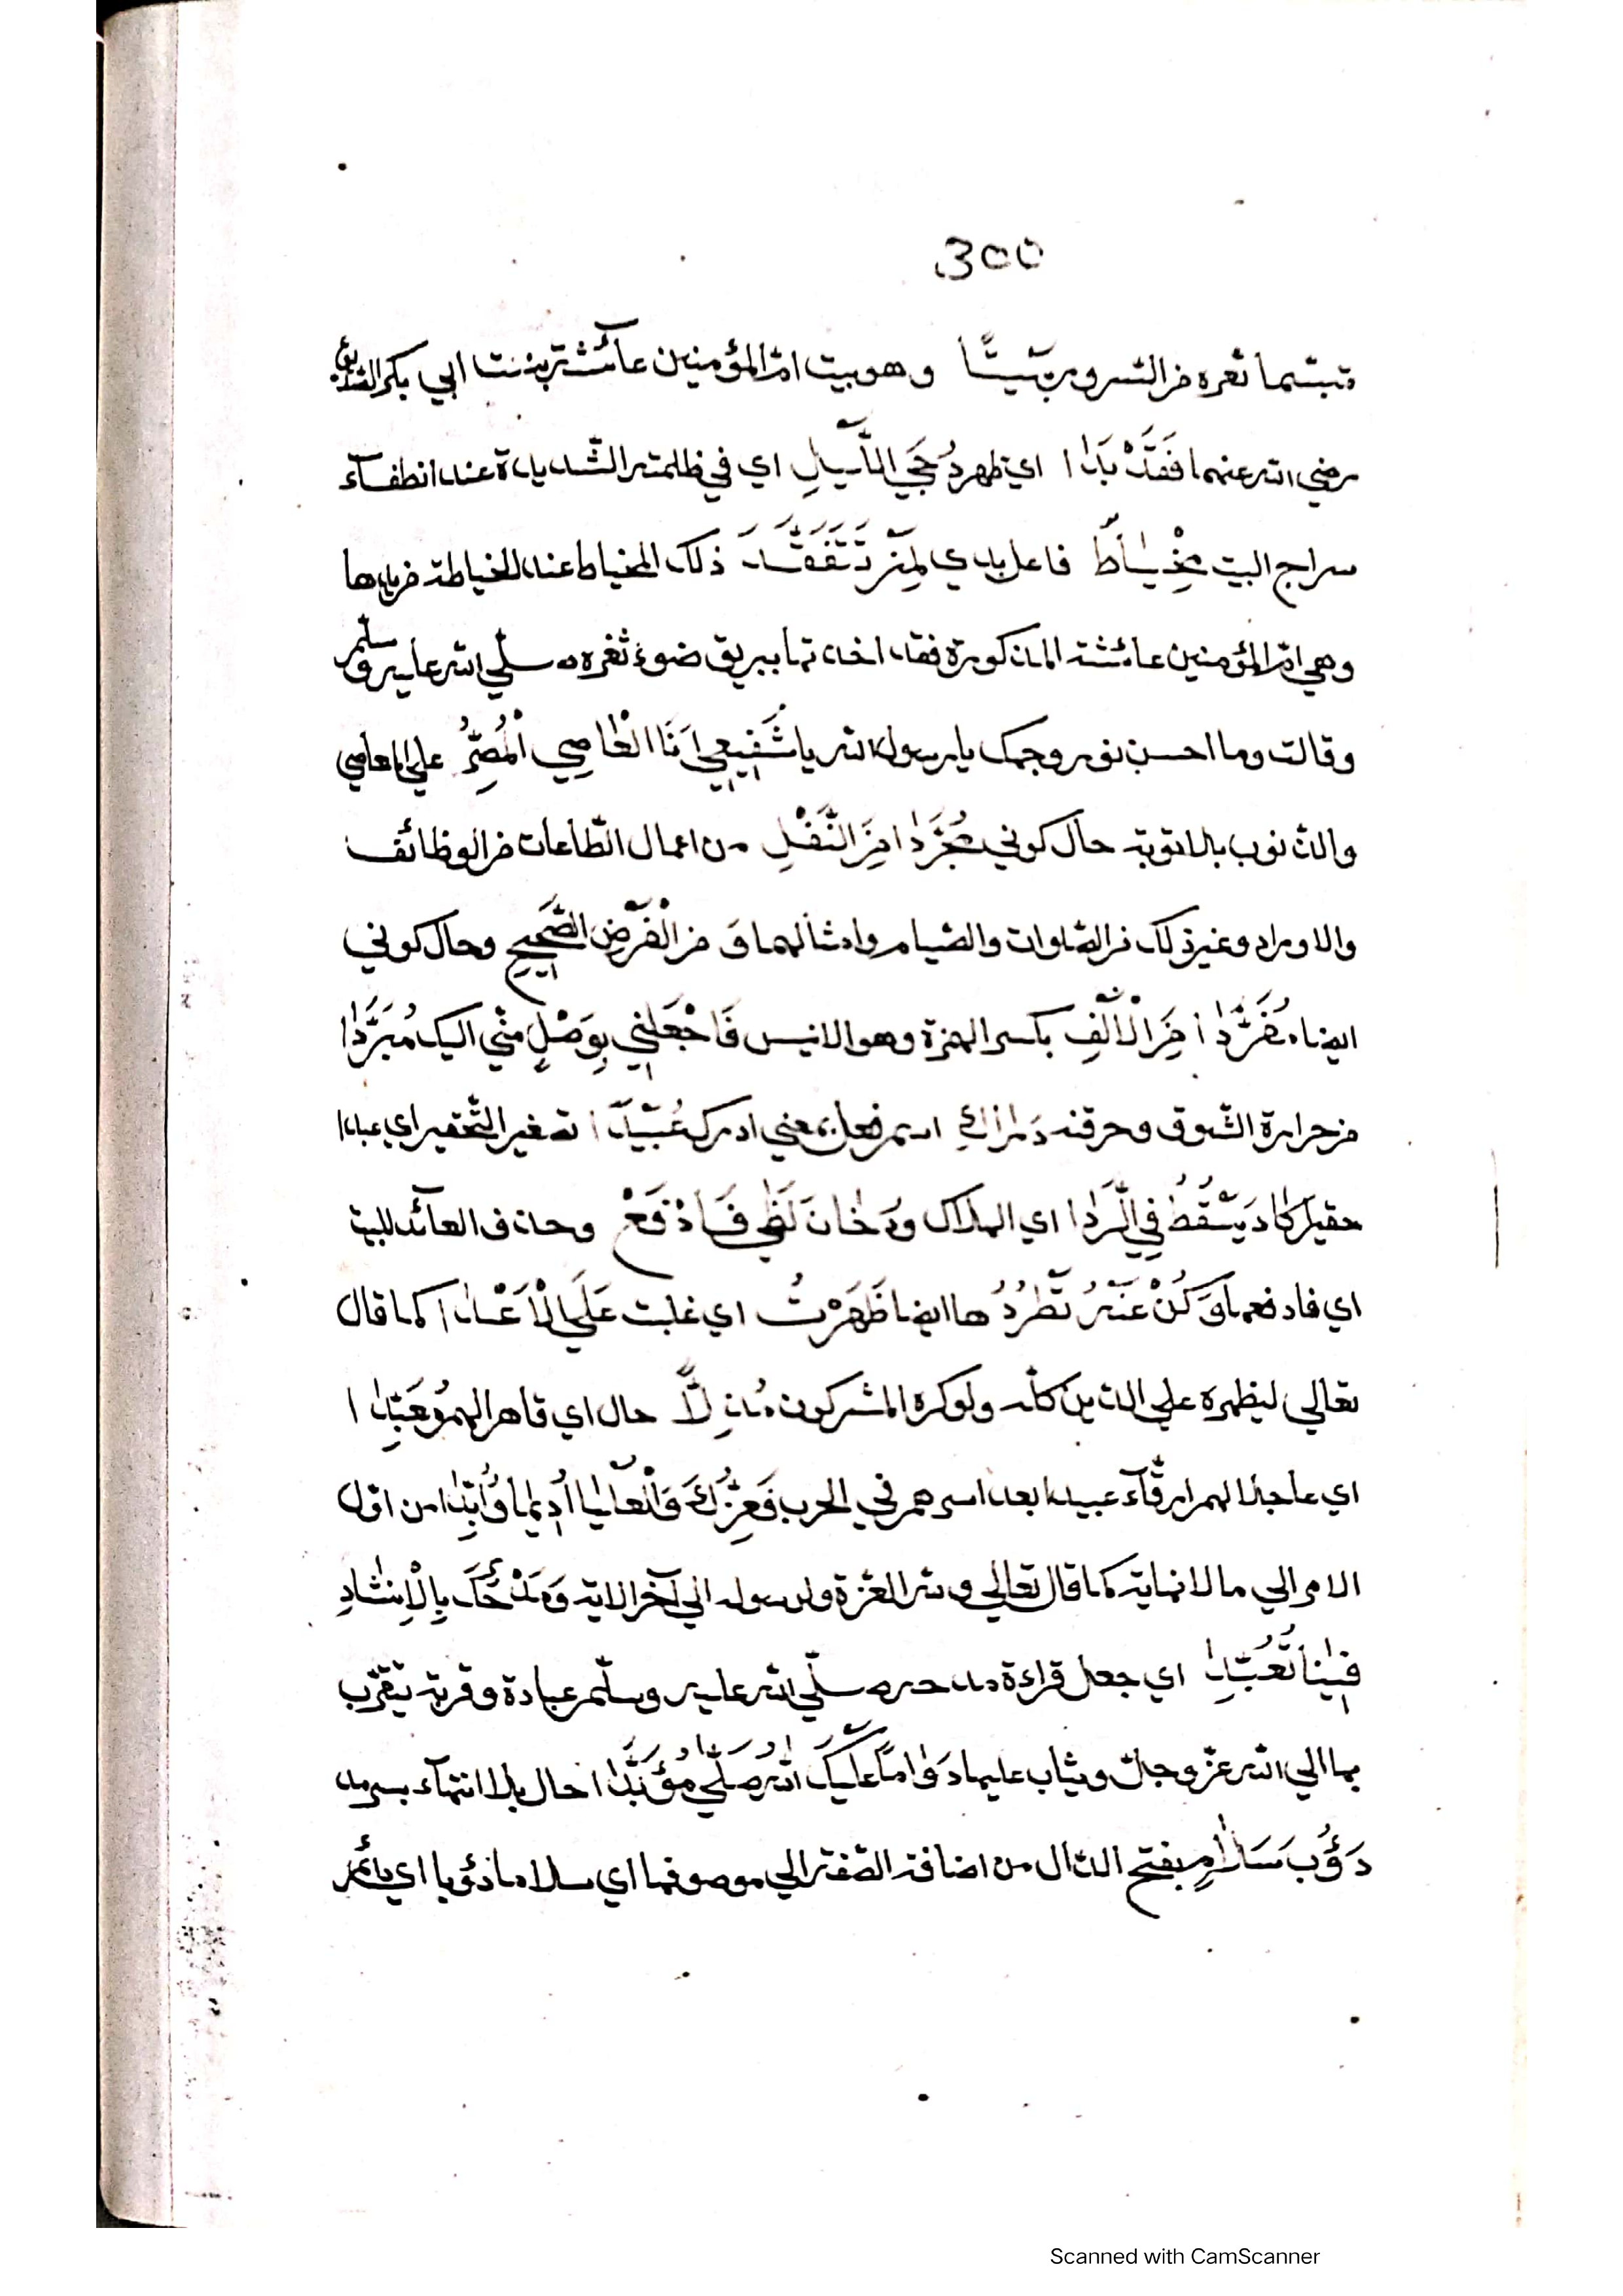 300
متبسّما ثغره من السرور بَيْتًا وهو بيت امّ المؤمنين عآئشة بنت ابي بكر الصّديق
رضي الله عنهما فَقَدْ بَدَا اي ظهر دُجَي اللَّيْلِ اي في ظلمته الشّديدة عند انطفآء
سراج البيت مِخْيَاطٌ فاعل بدي لِمَنْ تَتَفَقَّدَ ذلك المخياط عند الخياطة من يدها
وهي امّ المؤمنين عائشة المذكورة فقد اخذتها ببريق ضوء ثغره صلّي الله عليه وسلّم
وقالت وما احسن نور وجهك يا رسول الله يا شَفِيعِي اَنَا الْعَاصِي الْمُصِرُّ علي المعاصي
والذّنوب بلا توبة حال كوني مُجَرَّدًا مِنَ النَّفْلِ من اعمال الطّاعات من الوظائف
والاوراد وغير ذلك من الصّلوات والصّيام وامثالهما وَ من الْفَرْضِ الصَّحِيحِ وحال كوني
ايضا مُفَرَّدًا مِنَ الْاِلْفِ بكسر الهمزة وهو الانيس فَاجْعَلْنِي بِوَصْلٍ منّي اليك مُبَرَّدًا
من حرارة الشّوق وحرقته دَرَاكِ اسم فعل بمعني ادرك عُبَيْدًا تصغير التّحقير اي عبدا
حقيرا كَادَ يَسْقُطُ فِي الرَّدَا اي الهلاك وَدُخَانَ لَظَي فَادْفَعْ وحذف العآئد للبيت
اي فادفعها وَكُنْ عَنْهُ تَطْرُدُ ها ايضا ظَهَرْتَ اي غلبت عَلَي الْاَعْدَا كما قال
تعالي ليظهره علي الدّين كلّه ولو كره المشركون مُذِلًّا حال اي قاهر الهم وَمُعَبِّدًا
اي جاعلا لهم ارقّآء عبيدا بعد اسرهم في الحرب فَعِزُّكَ وَالْعَلْيَا اُدِيمَا وَاُبِّدَا من اوّل
الامر الي ما لا نهاية كما قال تعالي ولله العزّة ولرسوله الي آخر الاية وَمَدْحُكَ بِالْاِنْشَادِ
فِينَا تُعُبِّدَا اي جعل قراءة مدحه صلّي الله عليه وسلّم عبادة وقربة يتقرّب
بها الي الله عزّ وجلّ ويثاب عليها دَوَامًا عَلَيْكَ اللهُ صَلَّي مُؤَبَّدًا حال بلا انتهآء بسرمد
دَؤُبَ سَلَامٍ بفتح الدّال من اضافة الصّفة الي موصوفها اي سلاما دؤبا اي دآئم
Scanned with CamScanner